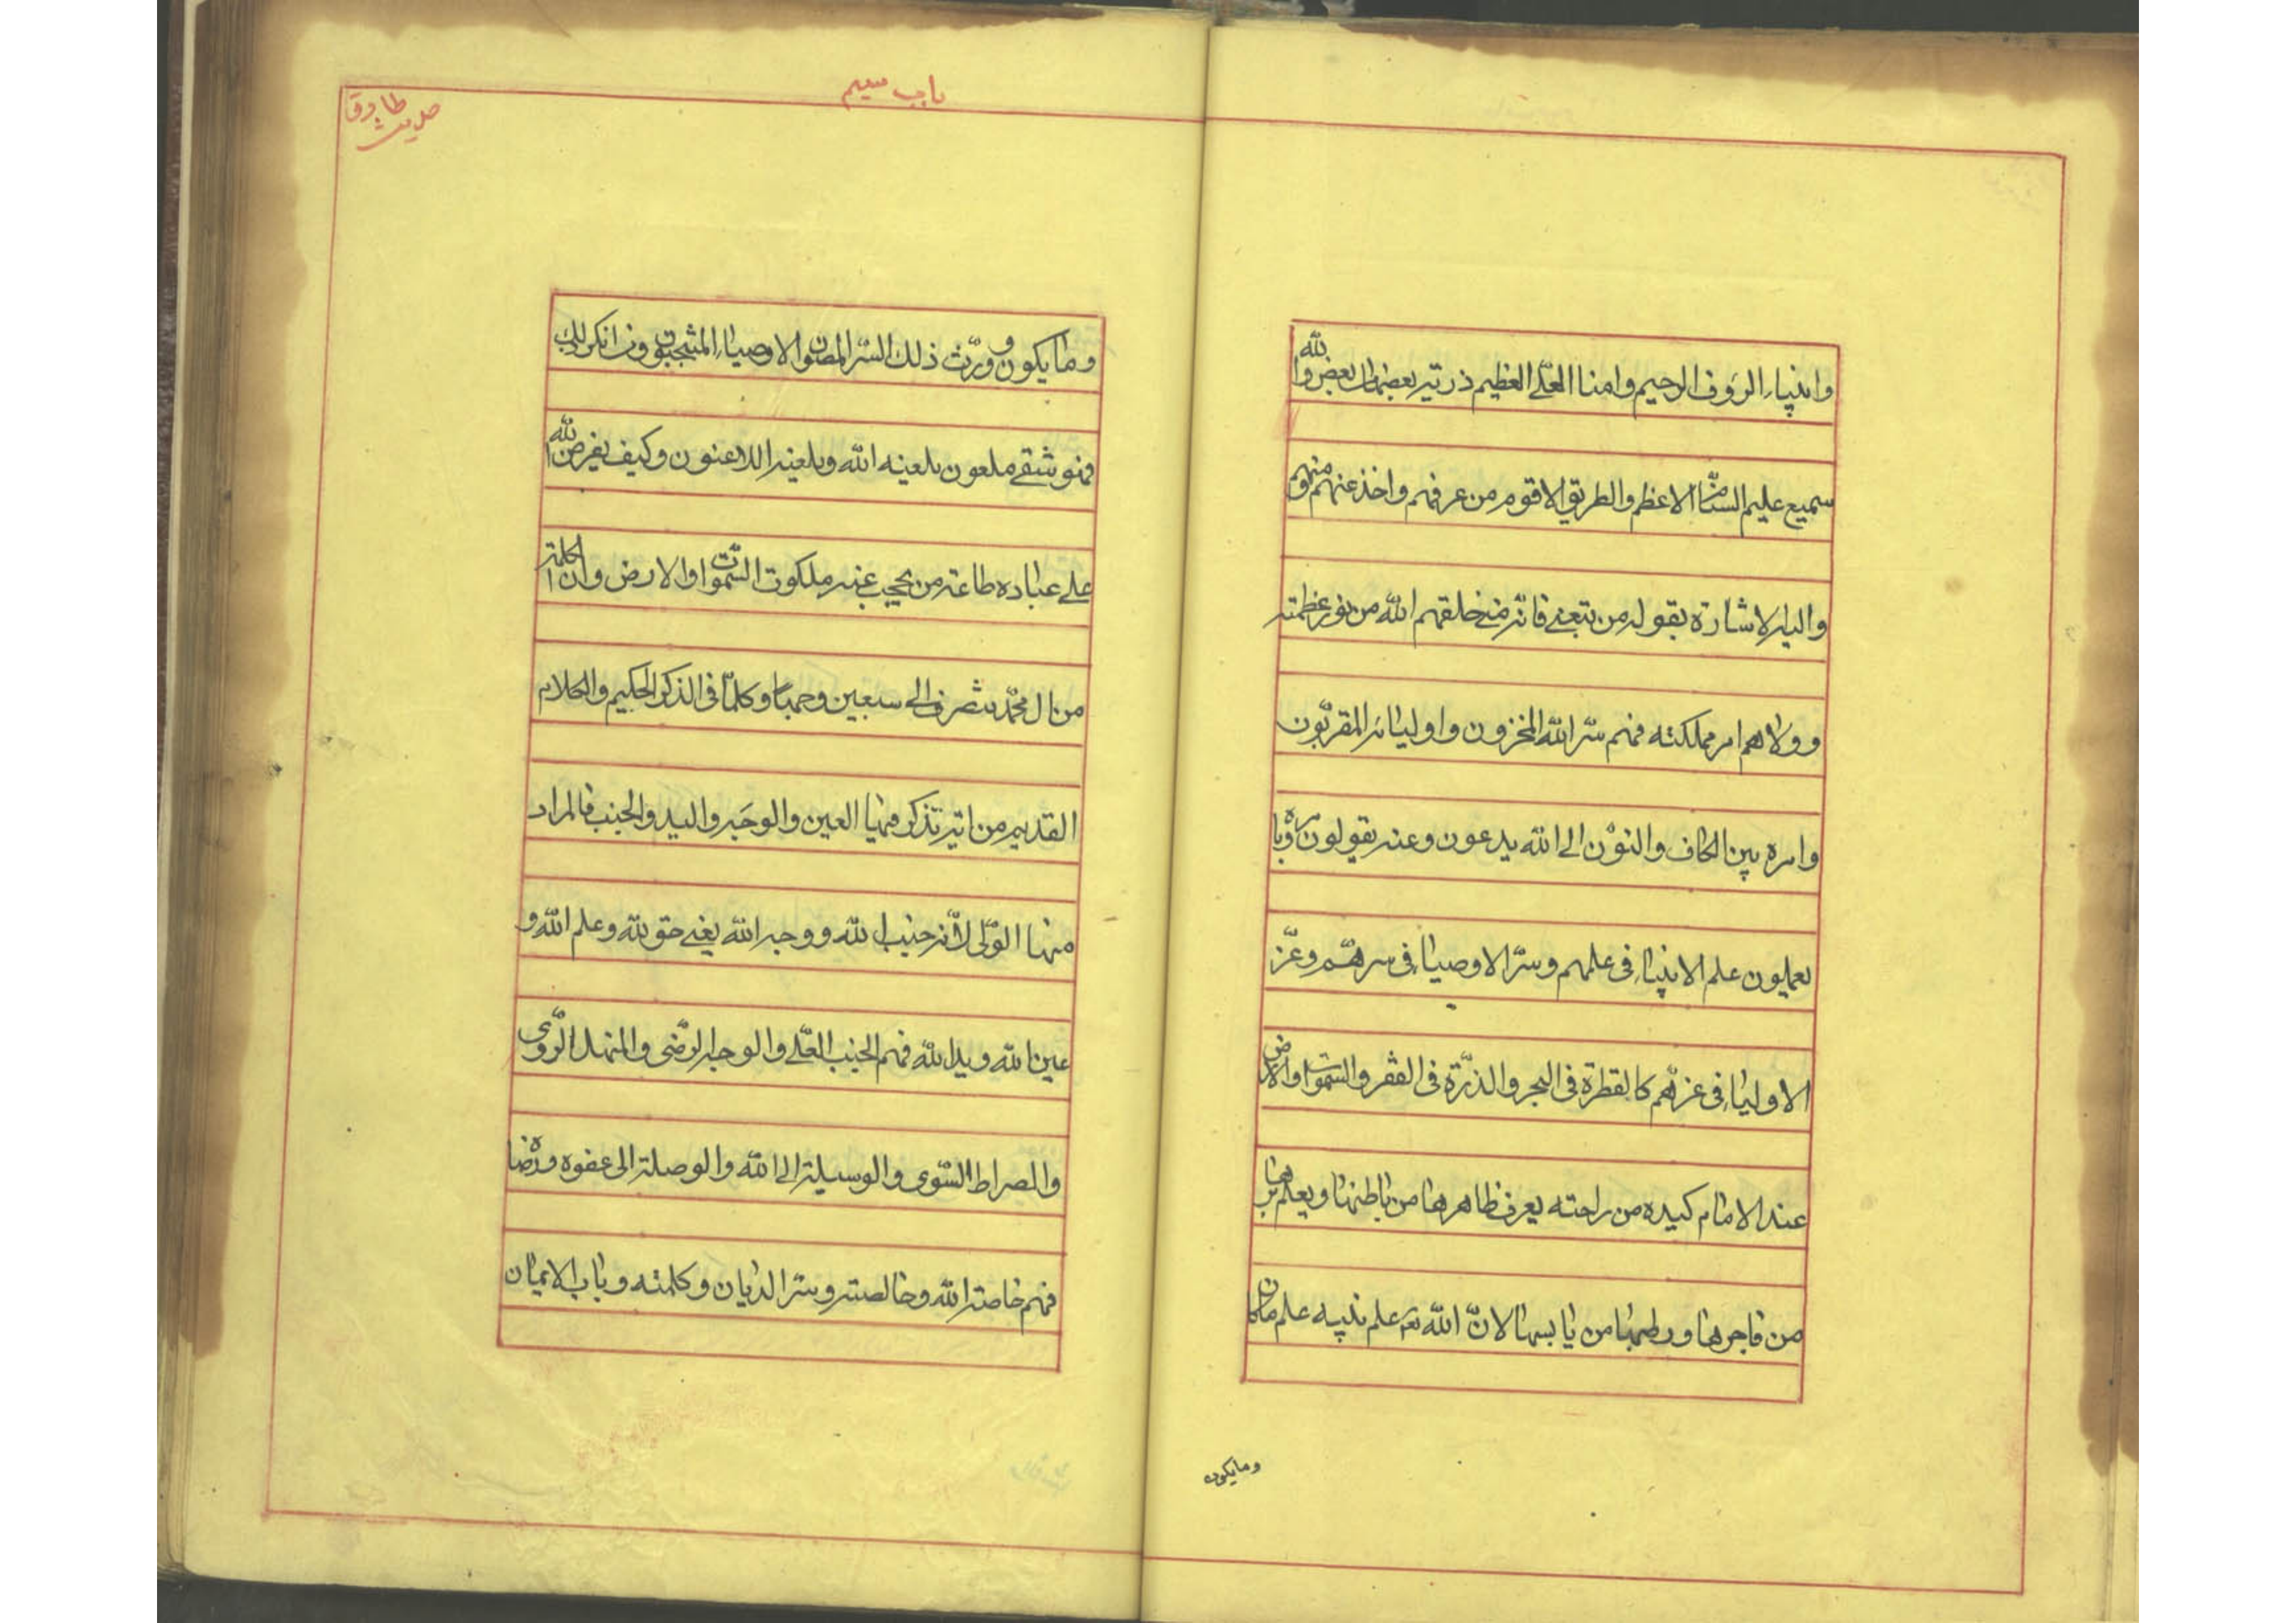 وانبياء الرؤف الرحيم وامنا العلى العظيم ذرية بعضها من بعض والله
سميع عليم السنام الاعظم والطريق الاقوم من عرفهم واخذ عنهم فهو منهم
واليه الاشارة بقوله من تبعنى فانه منى خلقهم الله من نور عظمته
وولاهم امر مملكته فهم سر الله المخزون واوليائه المقربون
وامره بين الكاف والنون الى الله يدعون وعنه يقولون وبامره
يعملون علم الانبياء فى علمهم وسر الاوصياء فى سرهم وعز
الاولياء فى عزهم كالقطرة فى البحر والذرة فى القفر والسموات والارض
عند الامام كيده من راحته يعرف ظاهرها من باطنها ويعلم برها
من فاجرها ورطبها من يابسها لان الله علم نبيه علم ما كان
وما يكون
باب سيم
حديث طارق
وما يكون وورث ذلك السر المصون الاوصياء المنتجبون ومن انكر ذلك
فهو شقى ملعون يلعنه الله ويلعنه اللاعنون وكيف يفرض الله
على عباده طاعة من يحجب عنه ملكوت السموات والارض وان الكلمة
من ال محمد تنصرف الى سبعين وجها وكلما فى الذكر الحكيم والكلام
القديم من اية تذكر فيها العين والوجه واليد والجنب فالمراد
منها الولى لانه جنب الله ووجه الله يعنى حق الله وعلم الله و
عين الله ويد الله فهم الجنب العلى والوجه الرضى والمنهل الروى
والصراط السوى والوسيلة الى الله والوصلة الى عفوه ورضاه
فهم خاصة الله وخالصته وسر الديان وكلمته وباب الايمان